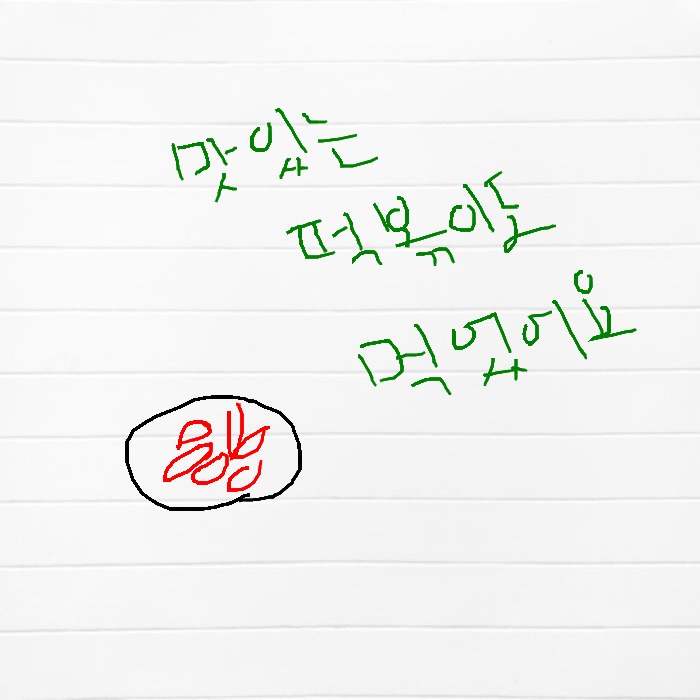 맛있는
떡볶이도
먹었어요